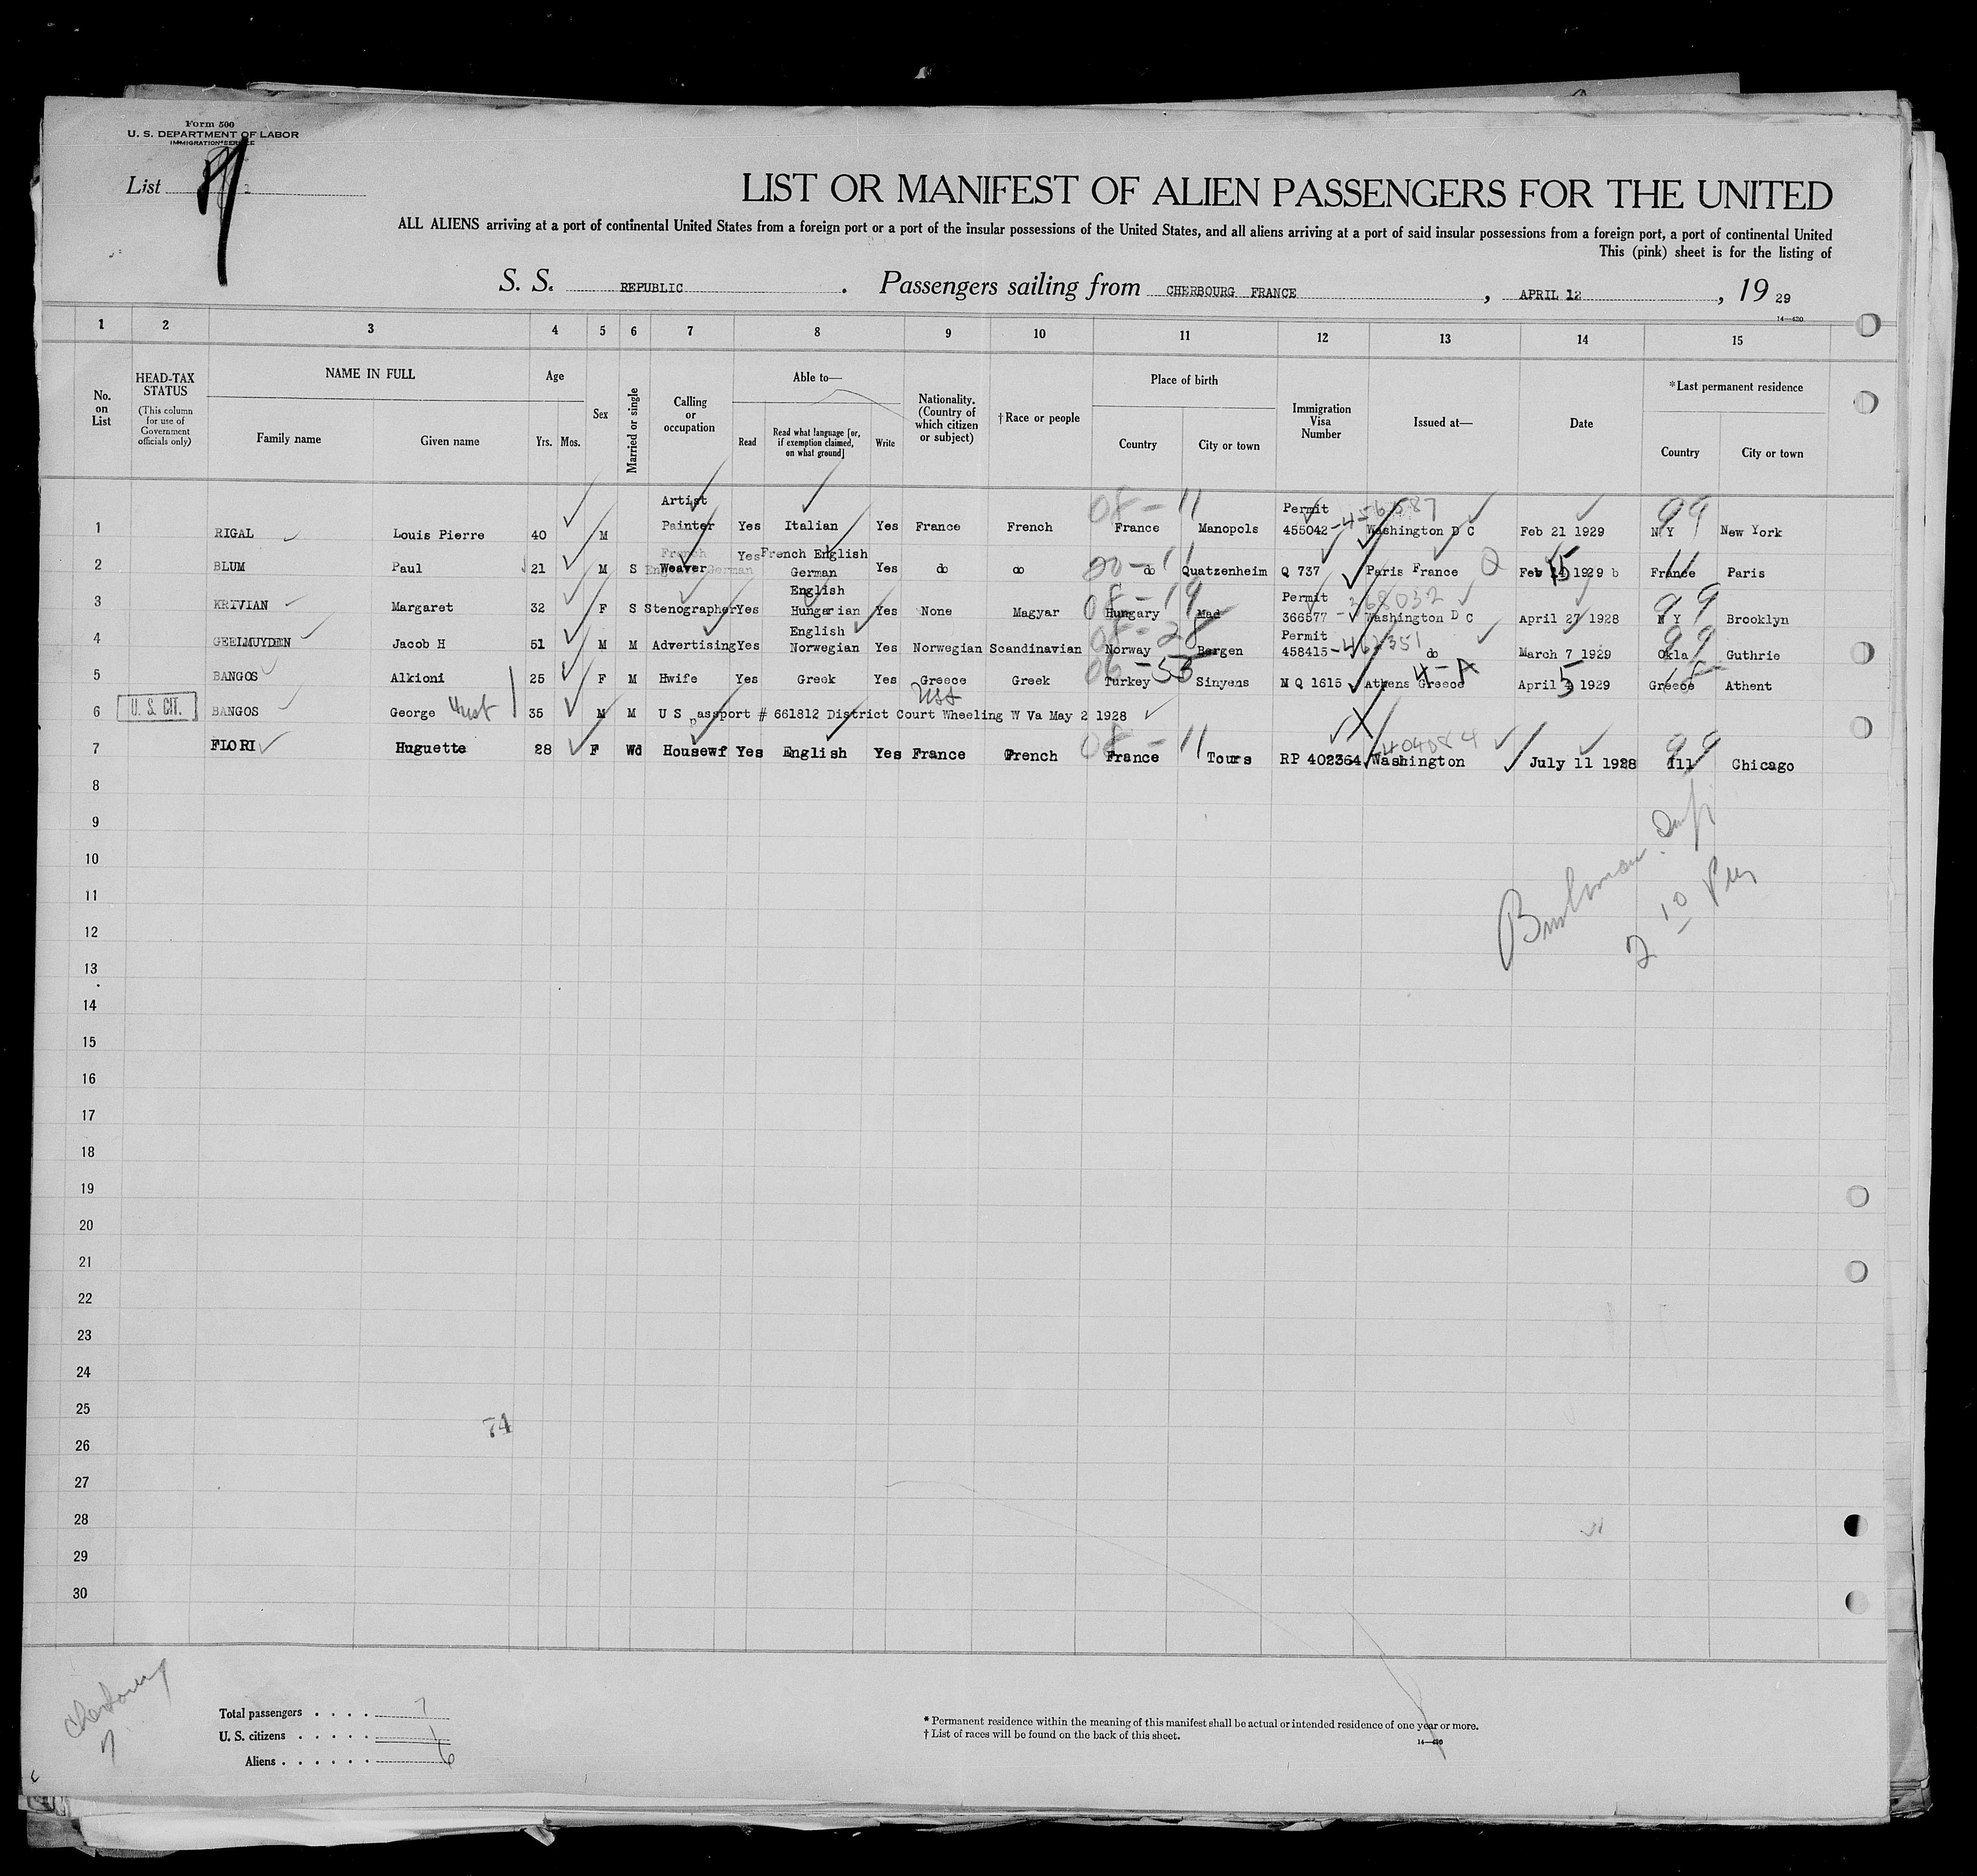 Form 500
U. S. DEPARTMENT OF LABOR
IMMIGRATION SERVICE
List
LIST OR MANIFEST OF ALIEN PASSENGERS FOR THE UNITED
ALL ALIENS arriving at a port of continental United States from a foreign port or a port of the insular possessions of the United States, and all aliens arriving at a port of said insular possessions from a foreign port, a port of continental United
This (pink) sheet is for the listing of
S. S. REPUBLIC. Passengers sailing from CHERBOURG FRANCE, APRIL 12, 19 29
14—430
1 2 3 4 5 6 7 8 9 10 11 12 13 14 15
No. on List
HEAD-TAX STATUS
(This column for use of Government officials only)
NAME IN FULL
Family name Given name
Age
Yrs. Mos.
Sex
Married or single
Calling or occupation
Able to—
Read
Read what language [or, if exemption claimed, on what ground]
Write
Nationality. (Country of which citizen or subject)
†Race or people
Place of birth
Country City or town
Immigration Visa Number
Issued at—
Date
*Last permanent residence
Country City or town
1 RIGAL Louis Pierre 40 M Artist Painter Yes Italian Yes France French 08-11 France Manopols Permit 455042 -456587 Washington D C Feb 21 1929 99 N Y New York
2 BLUM Paul 21 M S Weaver Yes French English German Yes do do 00-11 do Quatzenheim Q 737 Paris France Q Feb 1929 b 11 France Paris
3 KRIVIAN Margaret 32 F S Stenographer Yes English Hungarian Yes None Magyar 08-19 Hungary Mad Permit 366577 -368032 Washington D C April 27 1928 99 N Y Brooklyn
4 GEELMUYDEN Jacob H 51 M M Advertising Yes English Norwegian Yes Norwegian Scandinavian 08-28 Norway Bergen Permit 458415 -462351 do March 7 1929 99 Okla Guthrie
5 BANGOS Alkioni 25 F M Hwife Yes Greek Yes Greece Greek 06-55 Turkey Sinyens N Q 1615 Athens Greece 4-A April 5 1929 Greece Athent
U. S. CIT.
6 BANGOS George Hust 35 M M U S Passport # 661812 District Court Wheeling W Va May 2 1928 USA
7 FLORI Huguette 28 F Wd Housewf Yes English Yes France French 08-11 France Tours RP 402364 404084 Washington July 11 1928 99 Ill Chicago
8
9
10
11
12
13
14
15
16
17
18
19
20
21
22
23
24
25
26
27
28
29
30
2 10 Pm
74
Cherbourg
7
Total passengers . . . . 7
U. S. citizens . . . . . 1
Aliens . . . . . . 6
* Permanent residence within the meaning of this manifest shall be actual or intended residence of one year or more.
† List of races will be found on the back of this sheet.
14—430